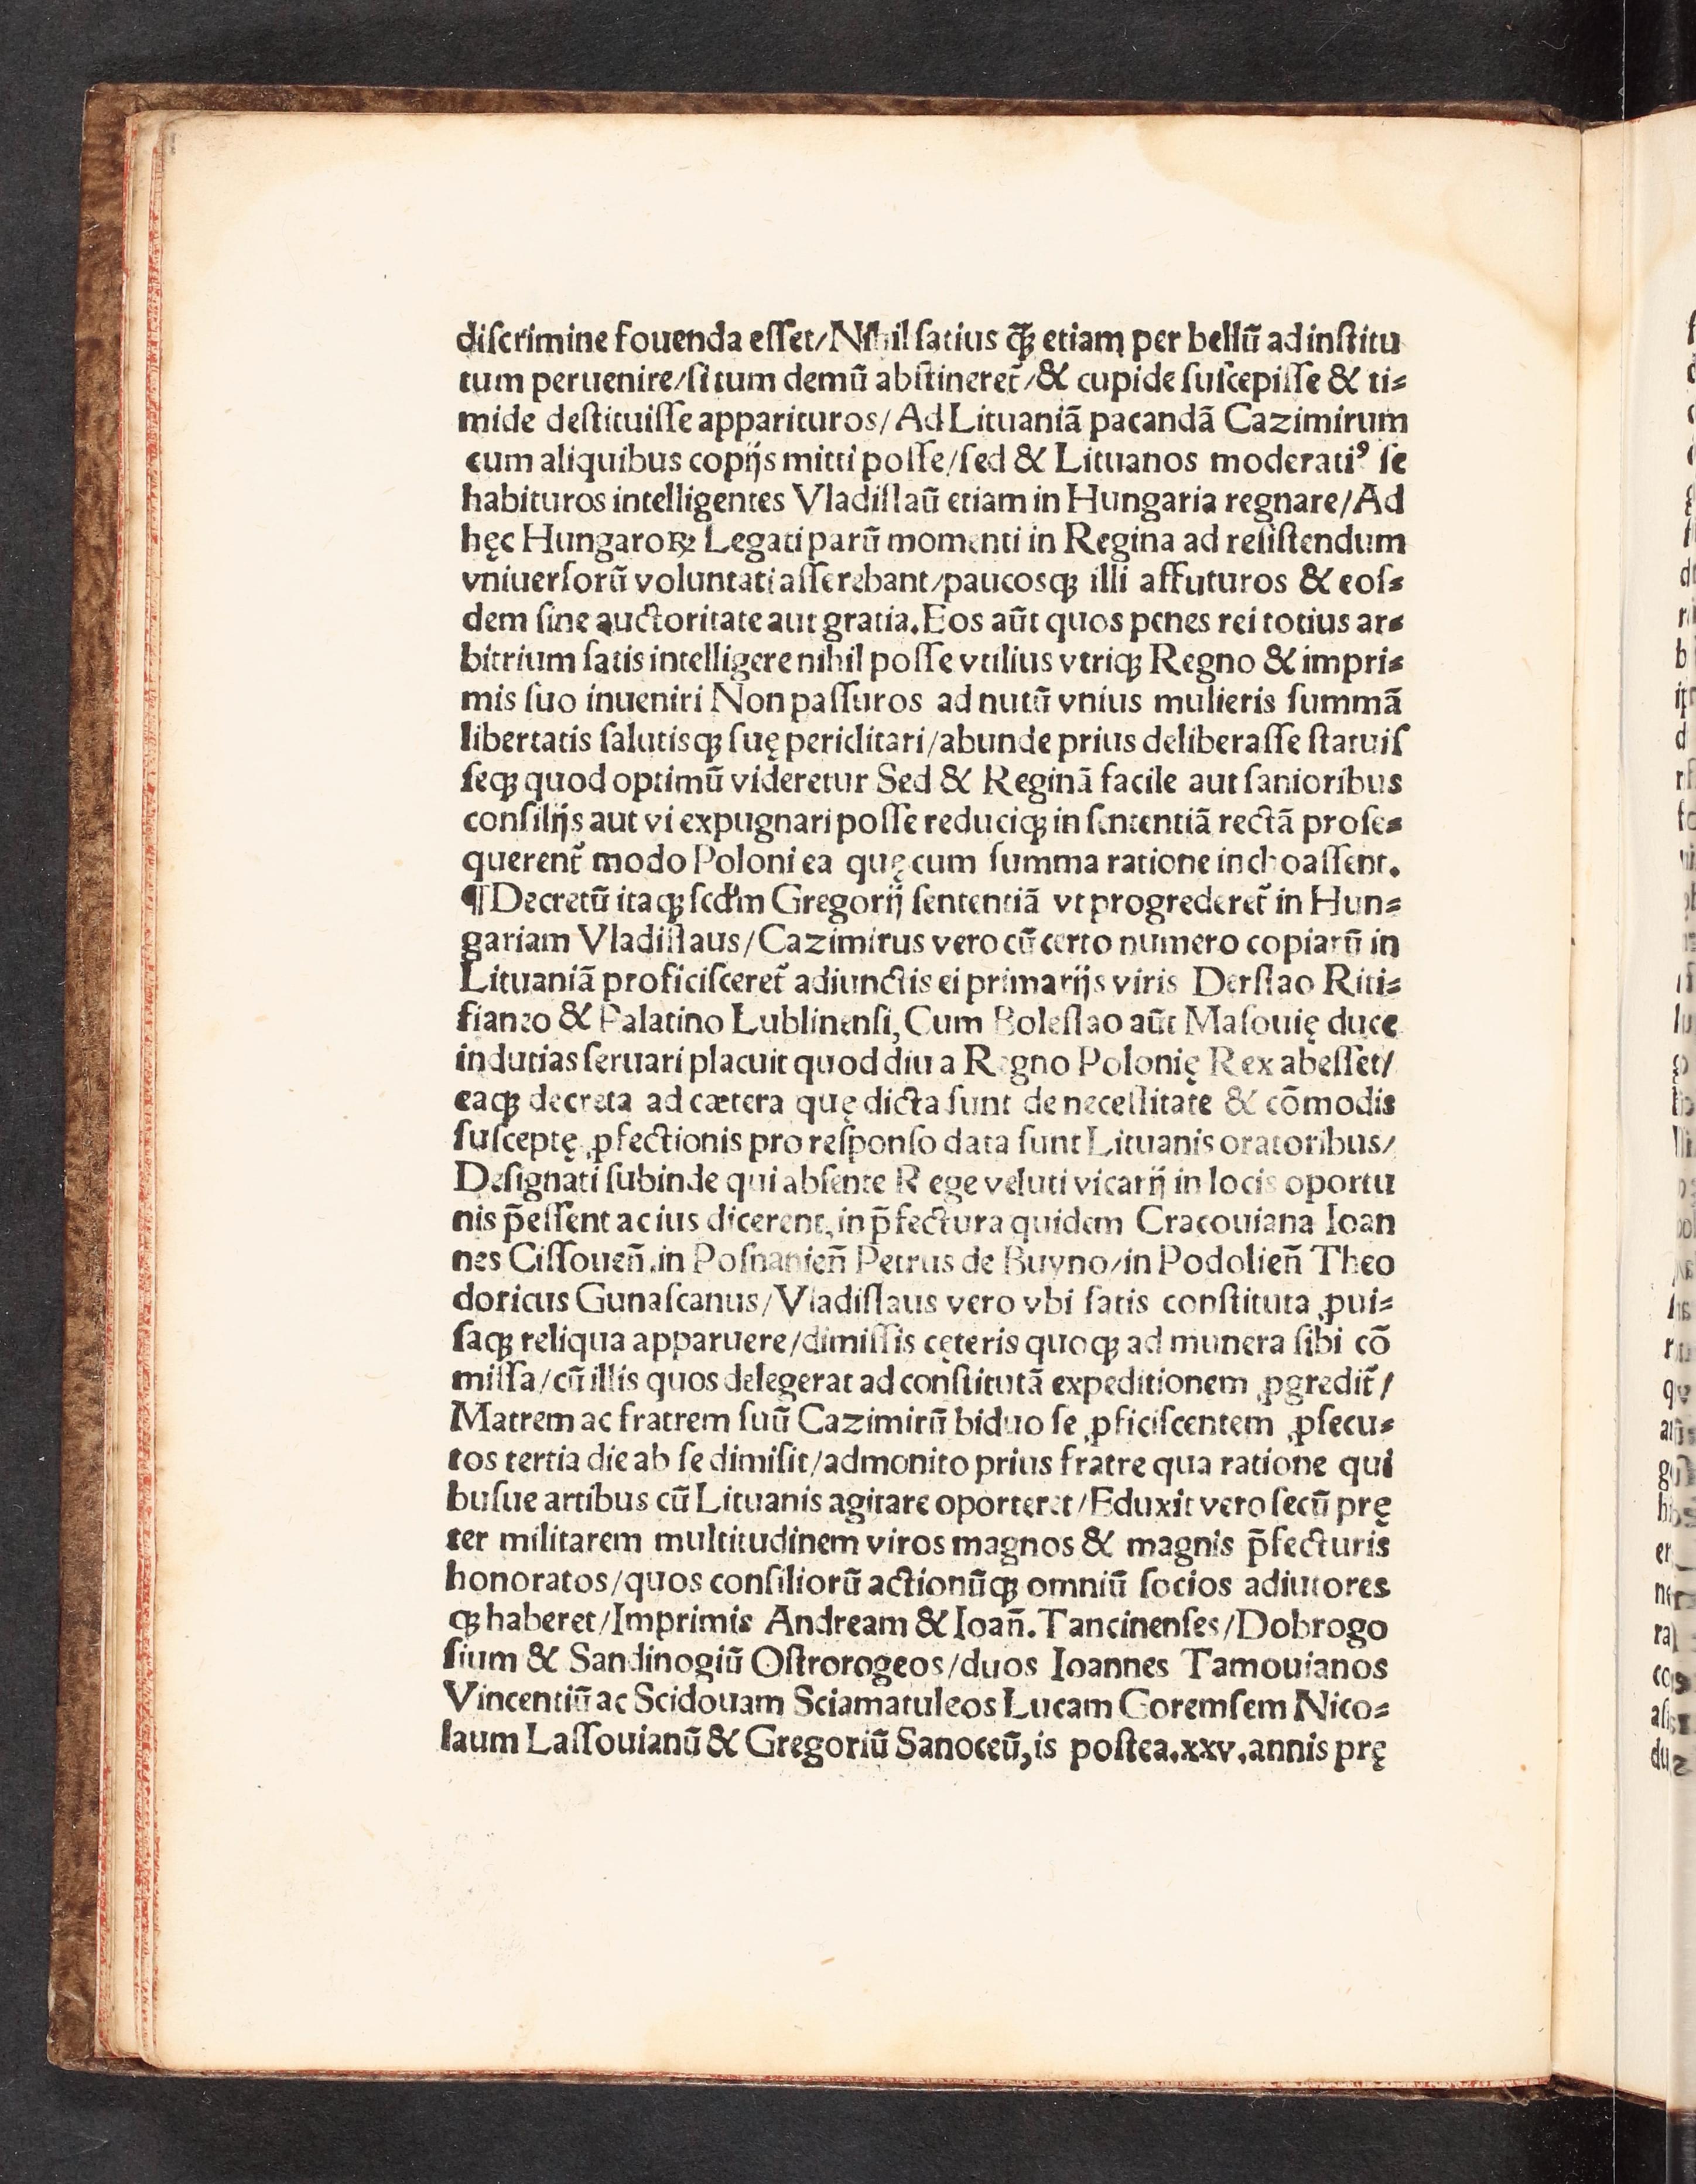 diſcrimine fouenda eſſet/Nihil ſatius qꝫ̃ etiam per bellũ ad inſtitu
tum peruenire/ſi tum demũ abſtineret᷑/& cupide ſuſcepiſſe & ti⸗
mide deſtituiſſe apparituros/Ad Lituaniã pacandã Cazimirum
cum aliquibus copijs mitti poſſe/ſed & Lituanos moderatiꝰ ſe
habituros intelligentes Vladiſlaũ etiam in Hungaria regnare/Ad
hęc Hungaroꝝ Legati parũ momenti in Regina ad reſiſtendum
vniuerſorũ voluntati aſſerebant/paucosqꝫ illi affuturos & eoſ⸗
dem ſine auctoritate aut gratia. Eos aũt quos penes rei totius ar⸗
bitrium ſatis intelligere nihil poſſe vtilius vtriqꝫ Regno & impri⸗
mis ſuo inueniri Non paſſuros ad nutũ vnius mulieris ſummã
libertatis ſalutisqꝫ ſuę periclitari/abunde prius deliberaſſe ſtatuiſ
ſeqꝫ quod optimũ videretur Sed & Reginã facile aut ſanioribus
conſilijs aut vi expugnari poſſe reduciqꝫ in ſententiã rectã proſe⸗
querent᷑ modo Poloni ea quę cum ſumma ratione inchoaſſent.
¶ Decretũ itaqꝫ ſcd'm Gregorij ſententiã vt progrederet᷑ in Hun⸗
gariam Vladiſlaus/Cazimirus vero cũ certo numero copiarũ in
Lituaniã proficiſceret᷑ adiunctis ei primarijs viris Derſlao Riti⸗
fianzo & Palatino Lublinenſi, Cum Boleſlao aũt Maſouię duce
indutias ſeruari placuit quod diu a Regno Polonię Rex abeſſet/
eaqꝫ decreta ad cætera quę dicta ſunt de neceſſitate & cõmodis
ſuſceptę ꝓfectionis pro reſponſo data ſunt Lituanis oratoribus/
Deſignati ſubinde qui abſente Rege veluti vicarij in locis oportu
nis p̃eſſent ac ius dicerent, in p̃fectura quidem Cracouiana Ioan
nes Ciſſoueñ. in Poſnanieñ Petrus de Buyno/in Podolieñ Theo
doricus Gunaſcanus/Vladiſlaus vero vbi ſatis conſtituta ꝓui⸗
ſaqꝫ reliqua apparuere/dimiſſis cęteris quoqꝫ ad munera ſibi cõ
miſſa/cũ illis quos delegerat ad conſtitutã expeditionem ꝓgredit᷑/
Matrem ac fratrem ſuũ Cazimirũ biduo ſe ꝓficiſcentem ꝓſecu⸗
tos tertia die ab ſe dimiſit/admonito prius fratre qua ratione qui
buſue artibus cũ Lituanis agitare oporteret/Eduxit vero ſecũ prę
ter militarem multitudinem viros magnos & magnis p̃fecturis
honoratos/quos conſiliorũ actionũqꝫ omniũ ſocios adiutores
qꝫ haberet/Imprimis Andream & Ioañ. Tancinenſes/Dobrogo
ſium & Sandinogiũ Oſtrorogeos/duos Ioannes Tamouianos
Vincentiũ ac Scidouam Sciamatuleos Lucam Goremſem Nico⸗
laum Laſſouianũ & Gregoriũ Sanoceũ, is poſtea.xxv.annis prę